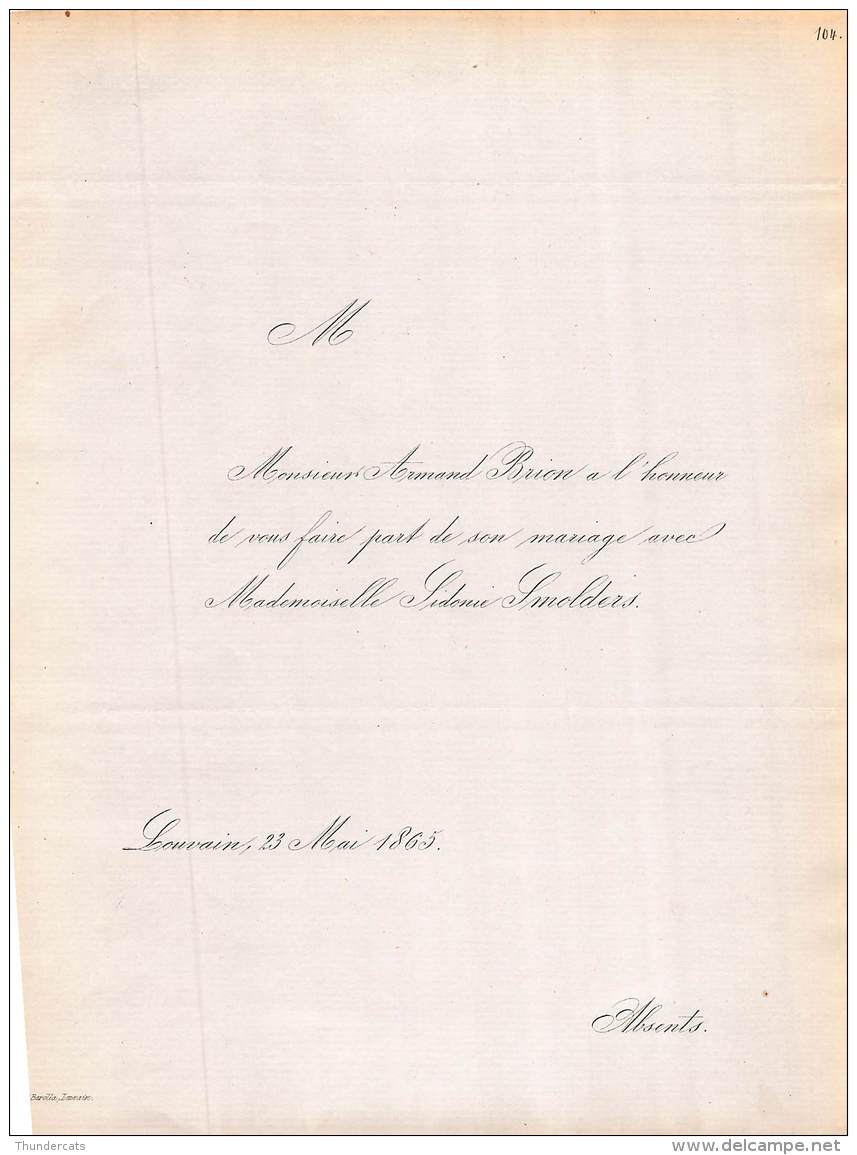 104.
M
Monsieur Armand Brion a l'honneur
de vous faire part de son mariage avec
Mademoiselle Sidonie Smolders.
Louvain, 23 Mai 1865.
Absents.
Louvain.
Thundercats
delcampe.net